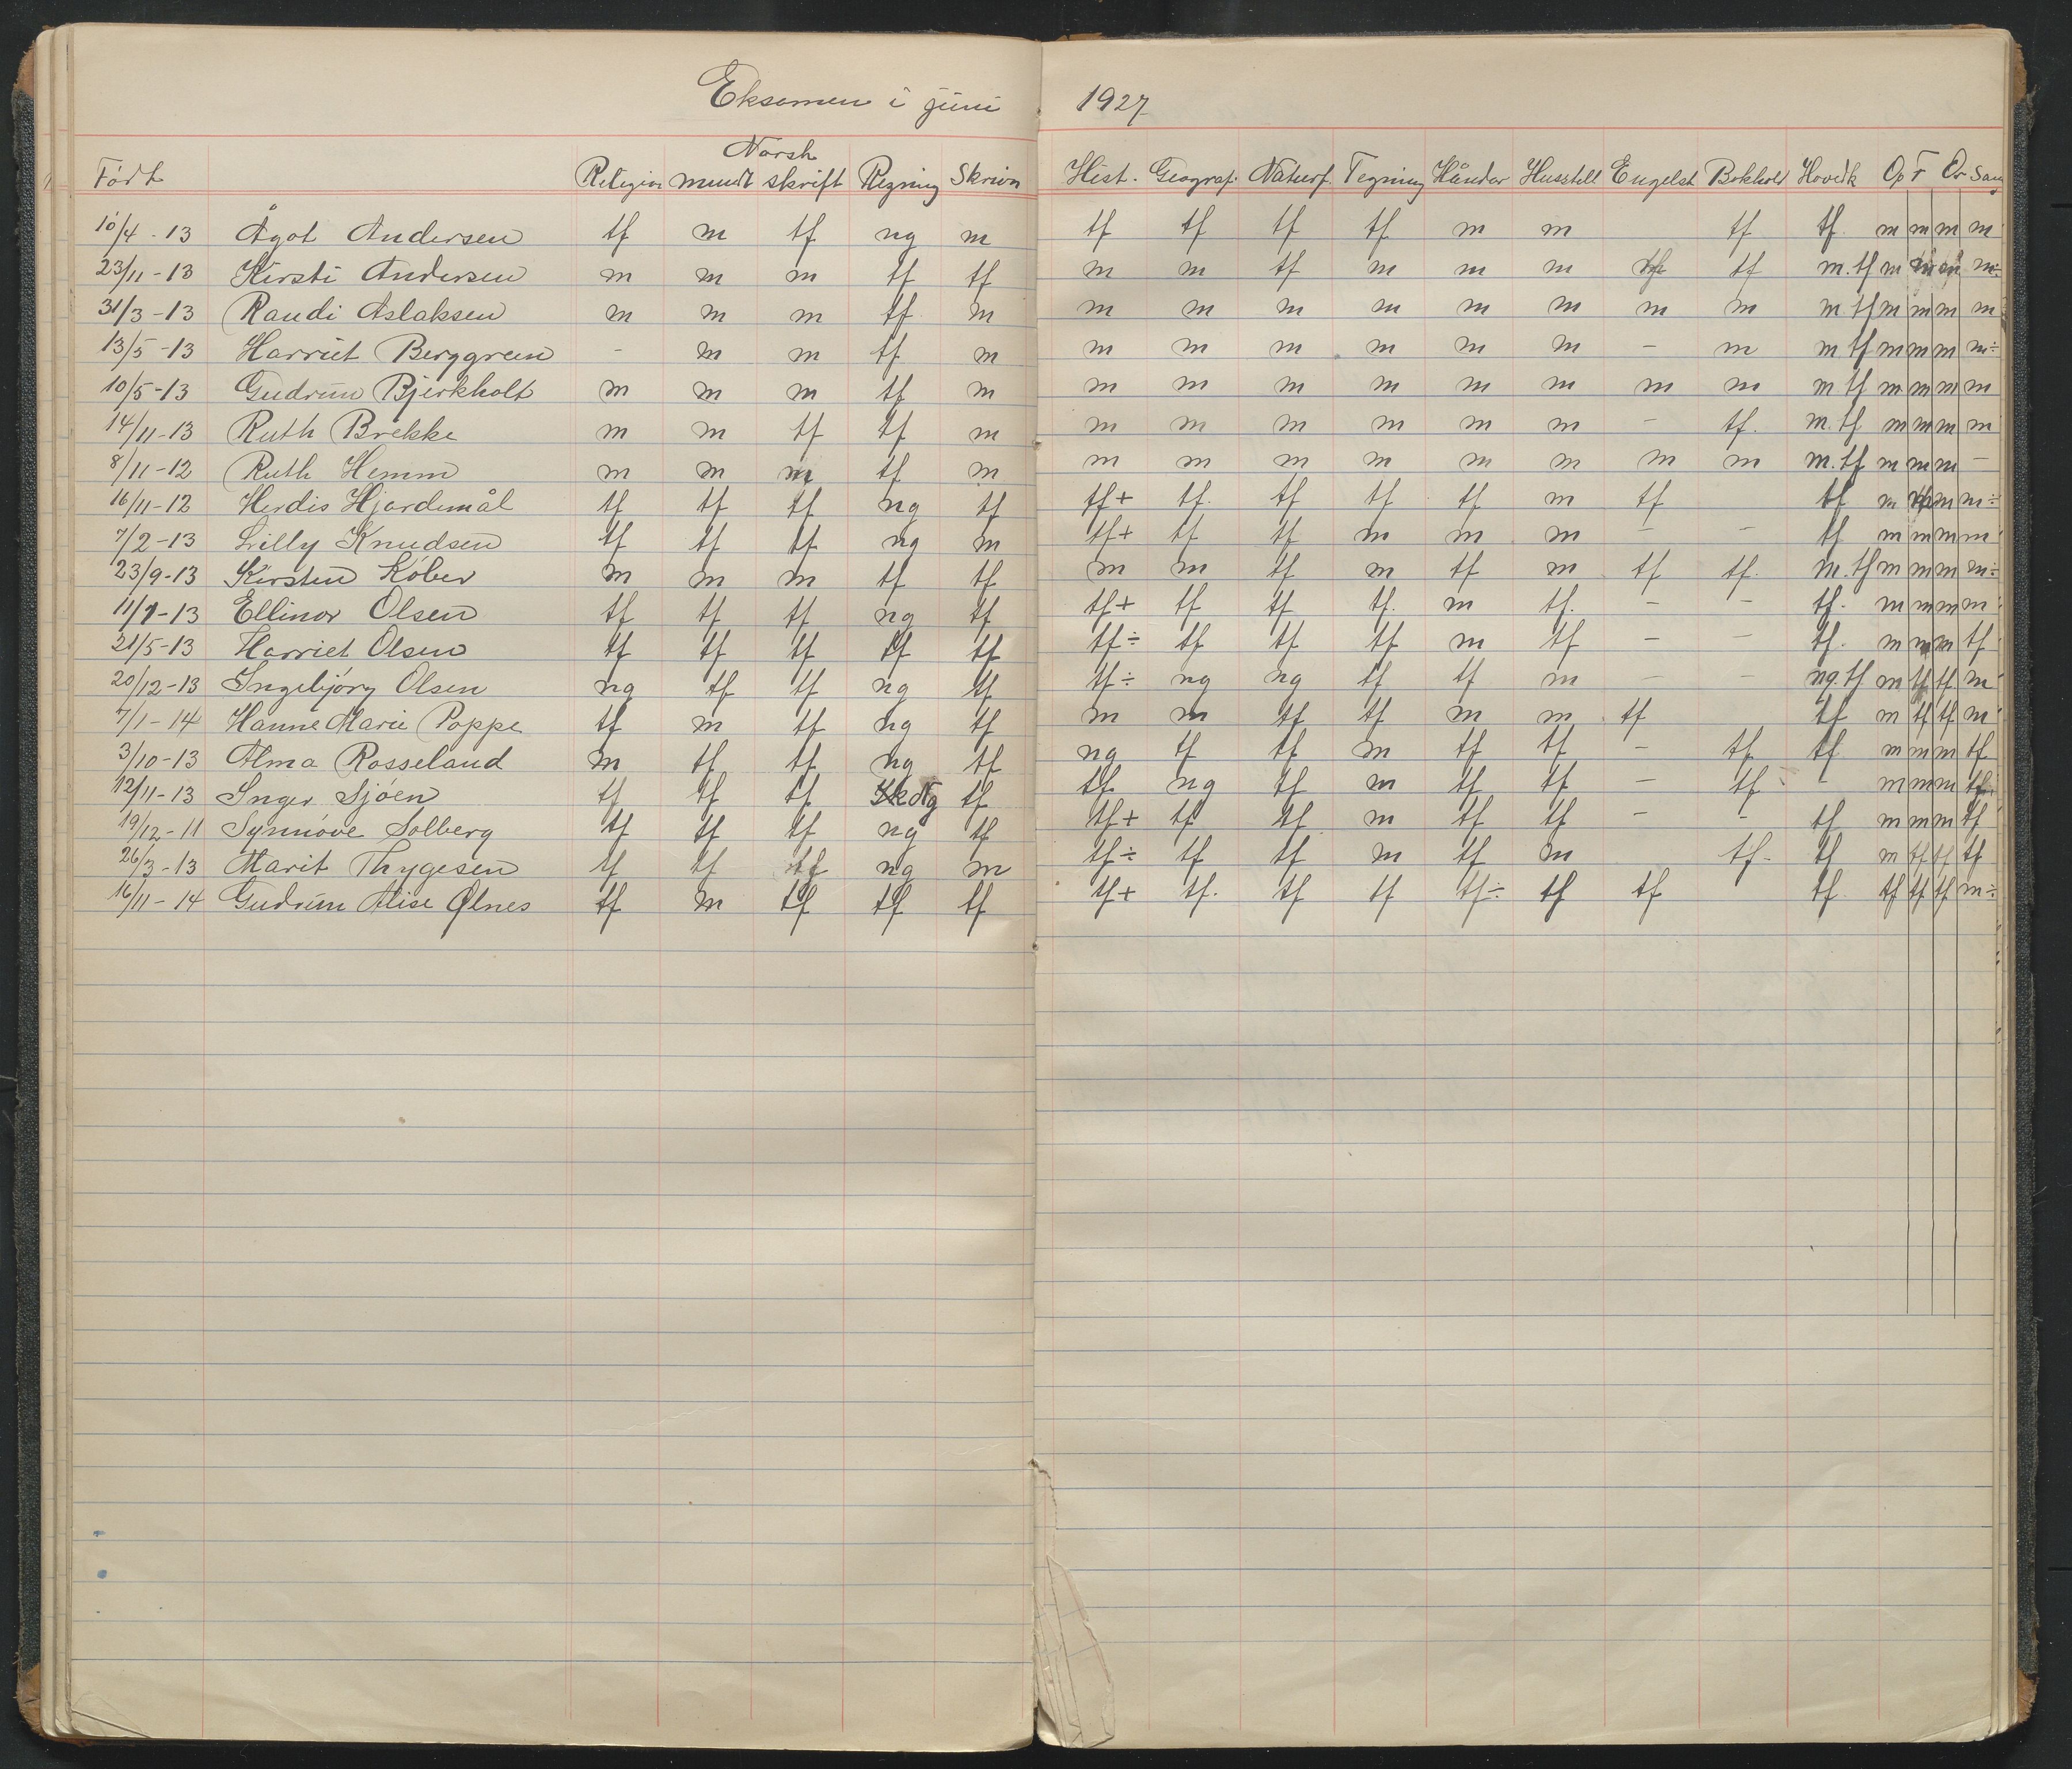 Eksamen i juni 1927
Norsk
Født Religion mundt skrift Regning Skrivn Hist. Geograf. Naturf. Tegning Håndar Husstell Engelsk Bokhold Hovedk Op F Or San
10/4-13 Ågot Andersen tf m tf ng m tf tf tf tf m m tf tf. m m m m
23/11-13 Kirsti Andersen m m m tf tf m m tf m m m tf m.tf m m÷
31/3-13 Randi Aslaksen m m m tf m m m m m m m m m m.tf m m m m
13/5-13 Harriet Berggreen - m m tf m m m m m m m - m m tf m m m m÷
10/5-13 Gudrun Bjerkholt m m m tf m m m m m m m m m m tf m m m m
14/11-13 Ruth Brekke m m tf tf m m m m m m m - tf. m.tf m m m m
8/11-12 Ruth Hemm m m m tf m m m m m m m m m m.tf m m m -
16/11-12 Herdis Hjardemål tf tf tf ng tf tf+ tf. tf tf tf m tf tf m m m÷
7/2-13 Lilly Knudsen tf tf tf ng m tf+ tf tf m m m - - tf m m m m
23/9-13 Kirsten Køber m m m tf tf m m tf m tf m tf tf. m.tf m m m m÷
11/7-13 Ellinor Olsen tf tf tf ng tf tf+ tf tf tf. m tf. - - tf. m m m m
21/5-13 Harriet Olsen tf tf tf tf tf tf÷ tf tf tf m tf - - tf. m m m tf
20/12-13 Ingebjørg Olsen ng tf tf ng tf tf÷ ng ng tf tf m - - ng.tf m tf tf m
7/1-14 Hanne Marie Poppe tf m tf ng tf m m tf tf m m tf tf m tf tf m
3/10-13 Alma Rosseland m tf tf ng tf ng tf tf m tf tf - tf tf m m m tf
12/11-13 Inger Sjøen tf tf tf tf tf ng tf m tf tf - tf - m m m tf
19/12-11 Synnøve Solberg tf tf tf ng tf tf+ tf tf m tf tf - - tf m m m tf
26/3-13 Marit Thygesen tf tf tf ng m tf÷ tf tf m tf m tf- tf m tf tf tf
16/11-14 Gudrun Alise Ølnes tf m tf tf tf tf+ tf. tf tf tf÷ tf tf tf. tf tf tf m÷